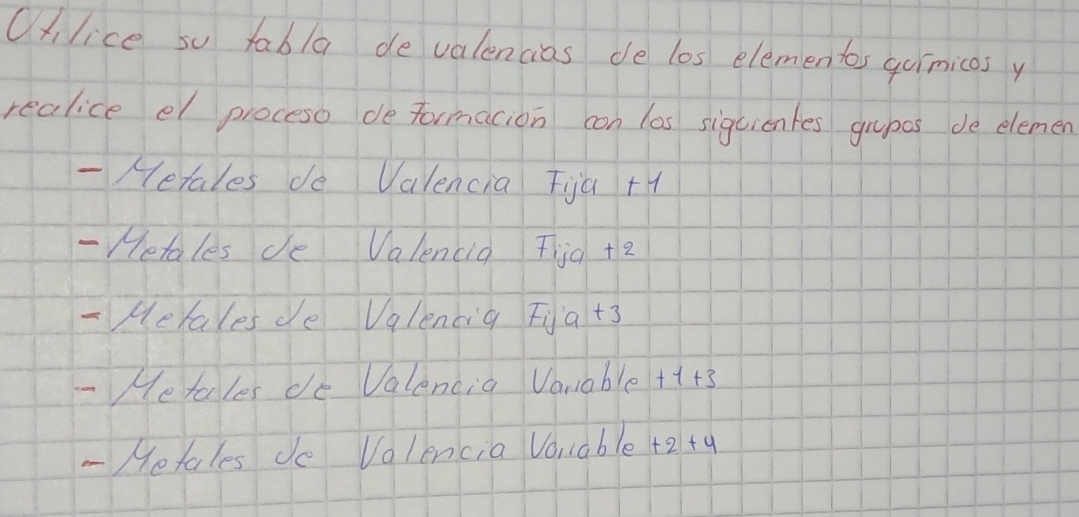 Utilice su tabla de valencias de los elementos químicos y
realice el proceso de formación con los siguientes grupos de elemen
- Metales de Valencia Fija +1
- Metales de Valencia Fija +2
- Metales de Valencia Fija +3
- Metales de Valencia Variable +1 +3
- Metales de Valencia Variable +2 +4